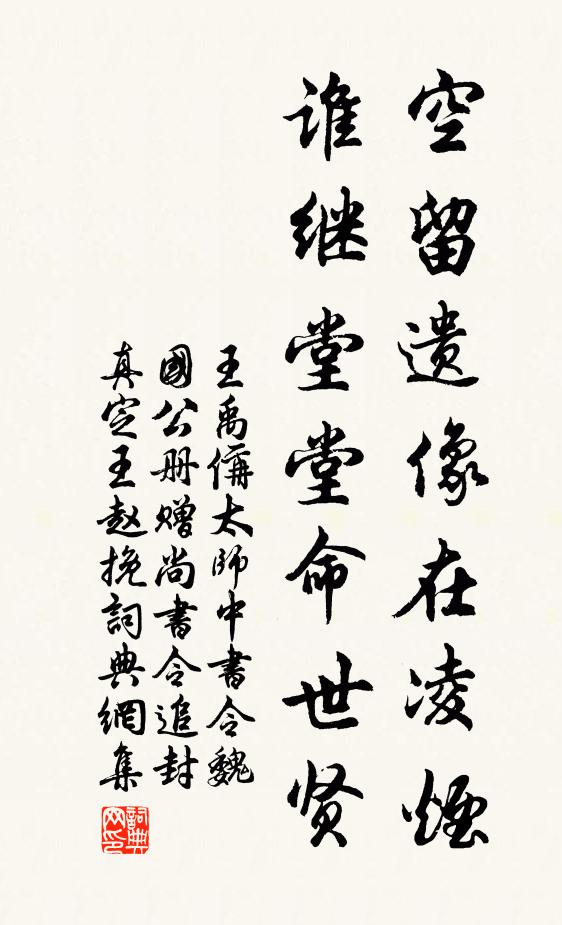 空留遗像在凌煙
谁继堂堂命世贤
王禹偁太师中書令魏
國公册赠尚書令追封
真定王赵挽詞典網集
詞典网印